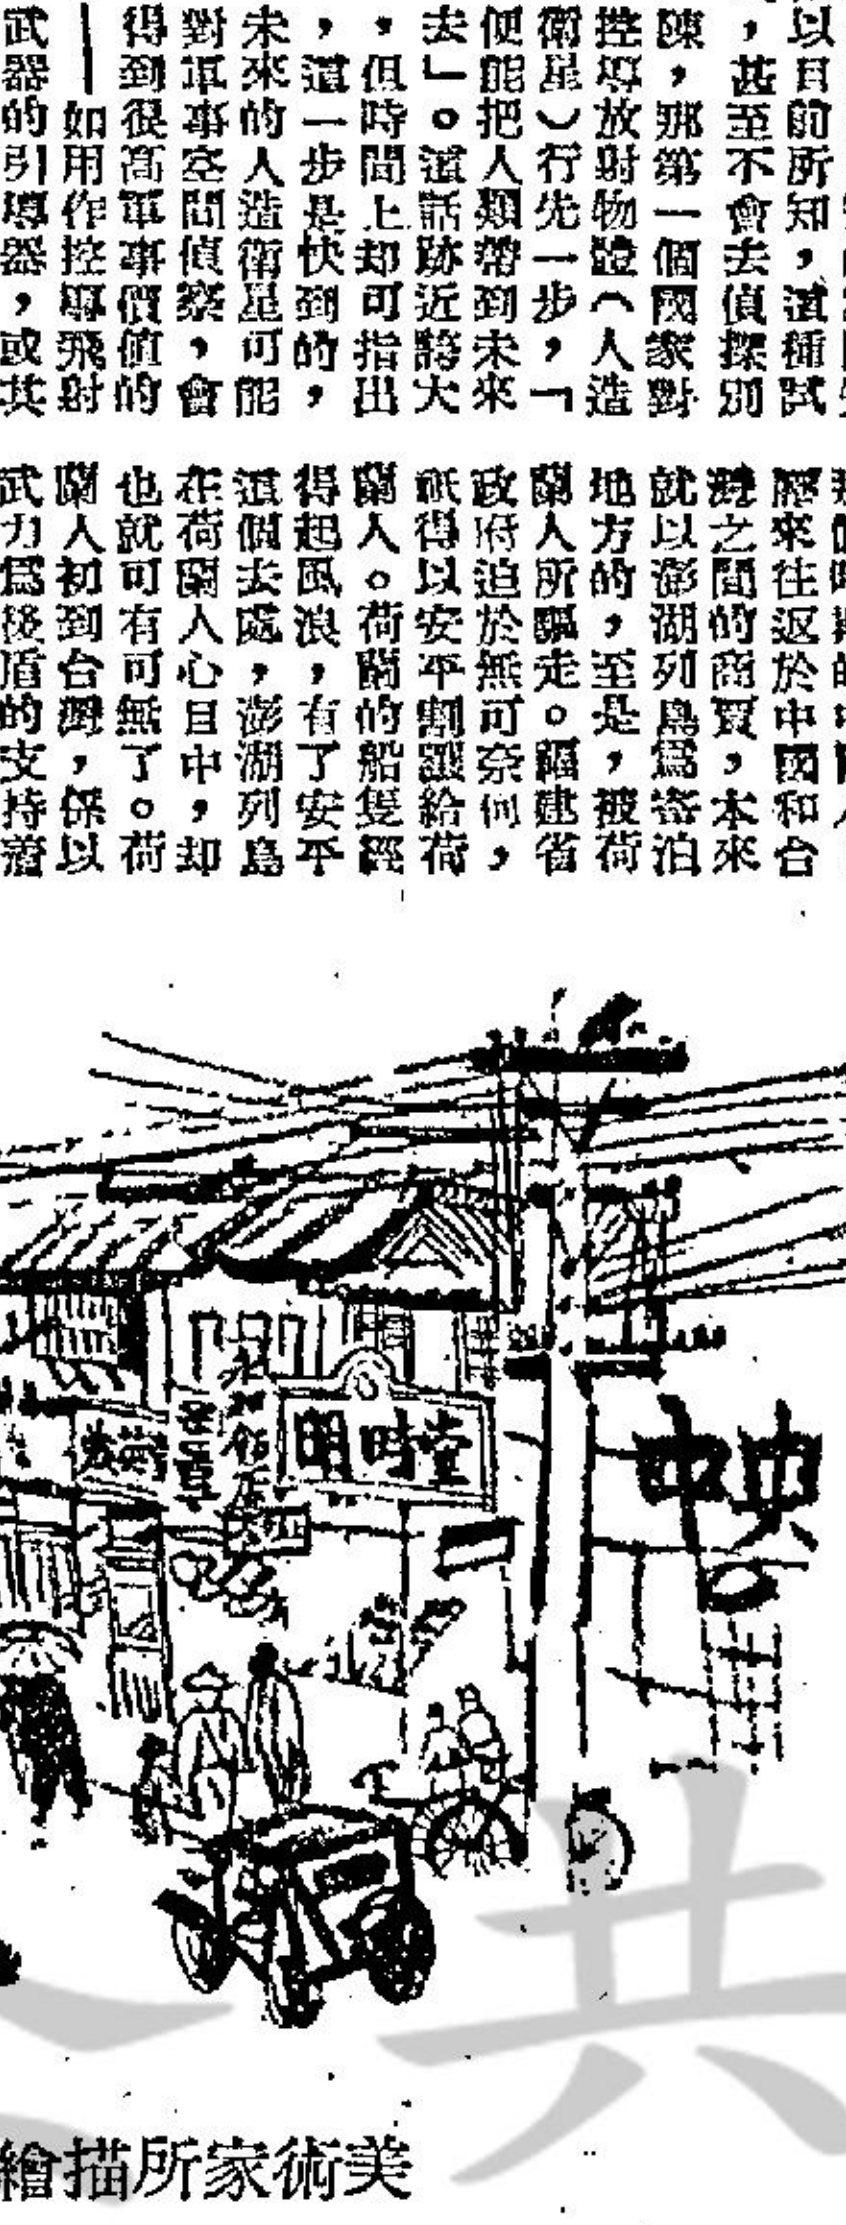 以目前所知，這種試
，甚至不會去偵探別
陳，那第一個國家對
控導放射物體（人造
衛星）行先一步，「
便能把人類帶到未來
去」。這話跡近誇大
，但時間上却可指出
，這一步是快到的，
未來的人造衛星可能
對軍事空間偵察，會
得到很高軍事價值的
——如用作控導飛射
武器的引導器，或其
經來往返於中國和台
灣之間的商賈，本來
就以澎湖列島爲寄泊
地方的，至是，被荷
蘭人所驅走。福建省
政府迫於無可奈何，
祇得以安平割讓給荷
蘭人。荷蘭的船隻經
得起風浪，有了安平
這個去處，澎湖列島
在荷蘭人心目中，却
也就可有可無了。荷
蘭人初到台灣，係以
武力爲後盾的支持着
明時堂
中央
美術家所描繪
共